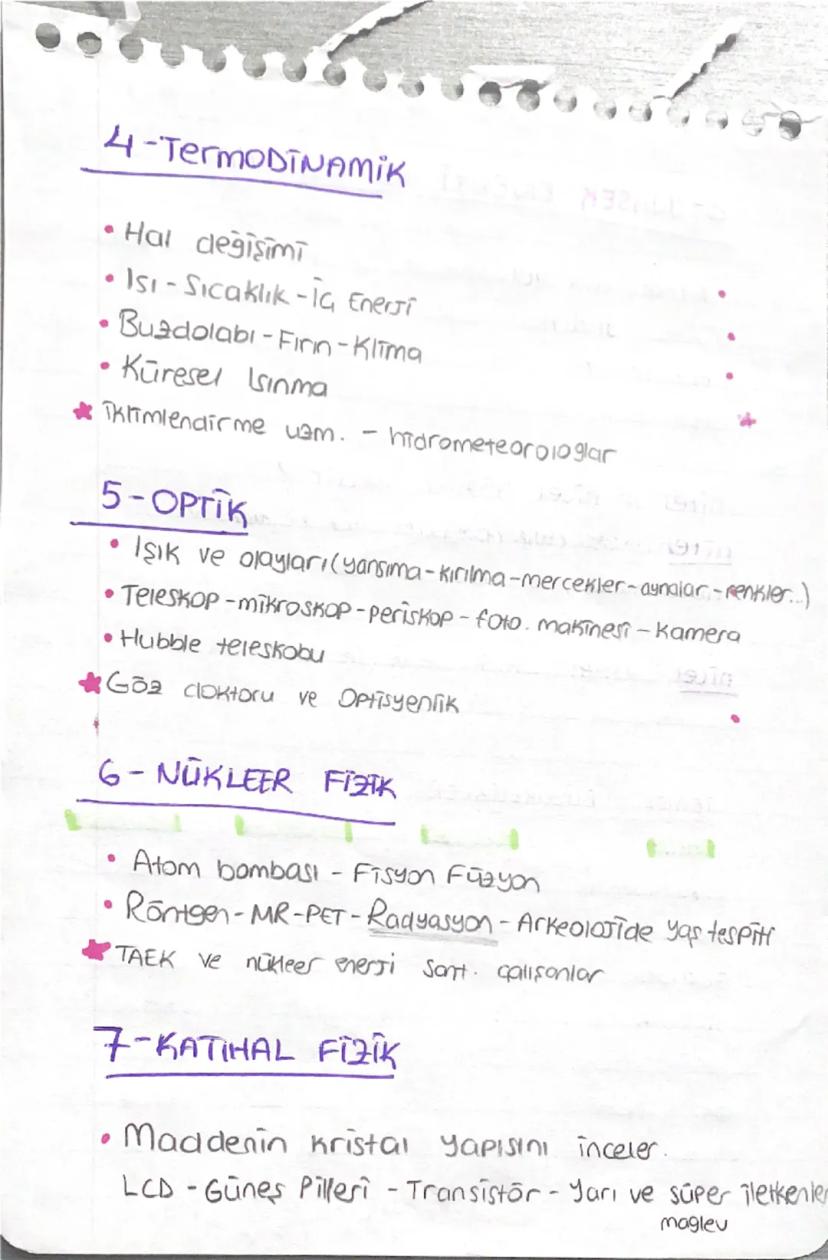 4-TERMODİNAMİK
• Hal değişimi
• Isı-Sıcaklık-İç Enerji
• Buzdolabı-Fırın-Klima
• Küresel Isınma
★ İklimlendirme uzm. - hidrometeorologlar
5-OPTİK
• Işık ve olayları (yansıma-kırılma-mercekler-aynalar-renkler..)
• Teleskop-mikroskop-periskop-foto. makinesi-kamera
• Hubble teleskobu
★ Göz doktoru ve Optisyenlik
6-NÜKLEER FİZİK
• Atom bombası - Fisyon Füzyon
• Röntgen-MR-PET-Radyasyon-Arkeolojide yaş tespiti
★ TAEK ve nükleer enerji sant. çalışanlar
7-KATIHAL FİZİK
• Maddenin kristal yapısını inceler.
LCD - Güneş Pilleri - Transistör - Yarı ve süper iletkenler
maglev